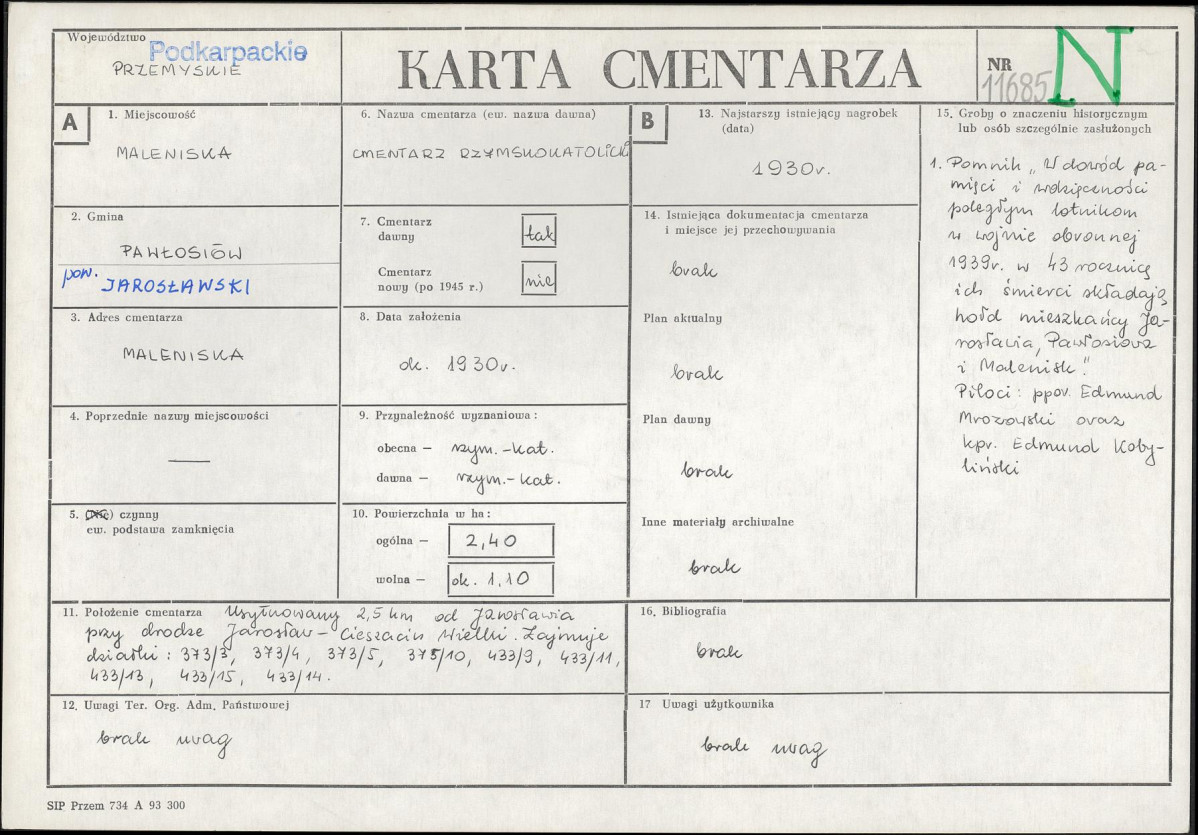 Województwo
Podkarpackie
PRZEMYSKIE
KARTA CMENTARZA
NR
11685
N
A
1. Miejscowość
MALENISKA
2. Gmina
PAWŁOSIÓW
pow. JAROSŁAWSKI
3. Adres cmentarza
MALENISKA
4. Poprzednie nazwy miejscowości
—
5. (Nie) czynny
ew. podstawa zamknięcia
6. Nazwa cmentarza (ew. nazwa dawna)
CMENTARZ RZYMSKOKATOLICKI
7. Cmentarz
dawny
tak
Cmentarz
nowy (po 1945 r.)
nie
8. Data założenia
ok. 1930r.
9. Przynależność wyznaniowa:
obecna — rzym.-kat.
dawna — rzym.-kat.
10. Powierzchnia w ha:
ogólna — 2,40
wolna — ok. 1,10
11. Położenie cmentarza Usytuowany 2,5 km od Jarosławia
przy drodze Jarosław - Cieszacin Wielki. Zajmuje
działki: 373/3, 373/4, 373/5, 373/10, 433/9, 433/11,
433/13, 433/15, 433/14.
12. Uwagi Ter. Org. Adm. Państwowej
brak uwag
B
13. Najstarszy istniejący nagrobek
(data)
1930r.
14. Istniejąca dokumentacja cmentarza
i miejsce jej przechowywania
brak
Plan aktualny
brak
Plan dawny
brak
Inne materiały archiwalne
brak
15. Groby o znaczeniu historycznym
lub osób szczególnie zasłużonych
1. Pomnik „W dowód pa-
mięci i wdzięczności
poległym lotnikom
w wojnie obronnej
1939r. w 43 rocznicę
ich śmierci składają
hołd mieszkańcy Ja-
rosławia, Pawłosiowa
i Malenisk."
Piloci: ppor. Edmund
Mrozowski oraz
kpr. Edmund Koby-
liński
16. Bibliografia
brak
17 Uwagi użytkownika
brak uwag
SIP Przem 734 A 93 300